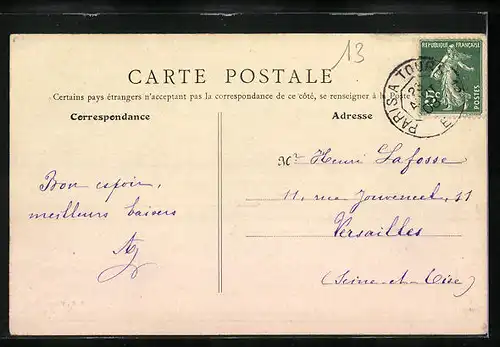 13
REPUBLIQUE FRANÇAISE
5c
POSTES
PARIS A TOURS
CARTE POSTALE
Certains pays étrangers n'acceptant pas la correspondance de ce côté, se renseigner à la Poste
Correspondance
Adresse
Mr Henri Lafosse
Bon espoir,
11, rue Jouvencel, 11
meilleurs baisers
Versailles
(Seine-et-Oise)